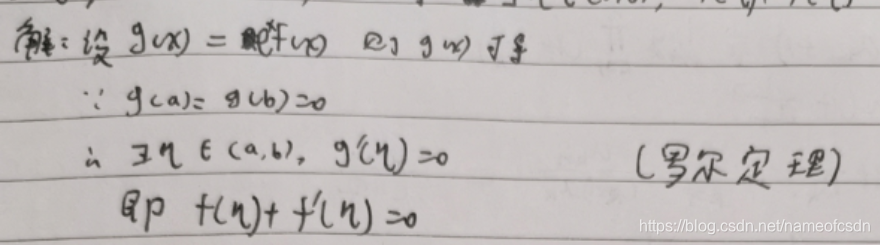 解：设 g(x) = eˣf(x) 则 g(x) 可导
∵ g(a) = g(b) = 0
∴ ∃η ∈ (a,b), g'(η) = 0 (罗尔定理)
即 f(η) + f'(η) = 0
https://blog.csdn.net/nameofcsdn